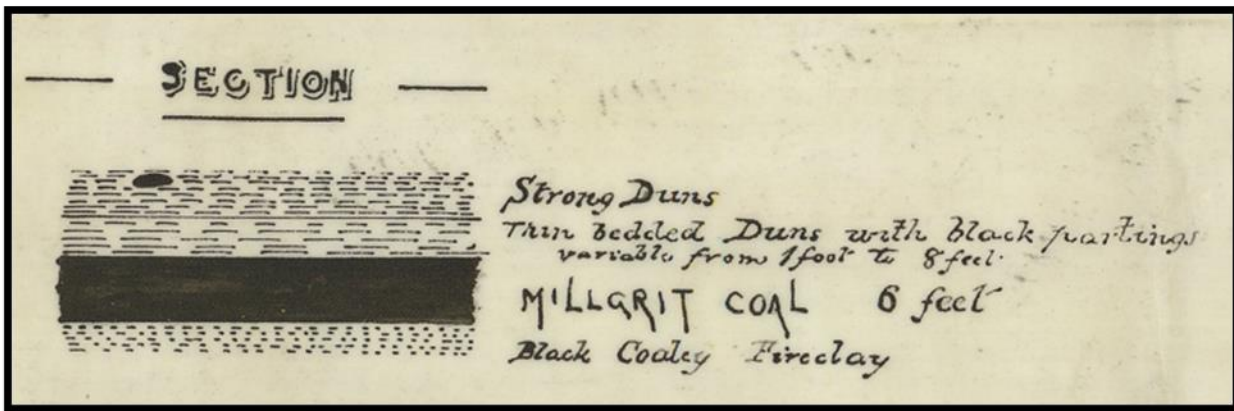 SECTION
Strong Duns
Thin bedded Duns with black partings
variable from 1 foot to 8 feet
MILLGRIT COAL 6 feet
Black Coaley Fireclay